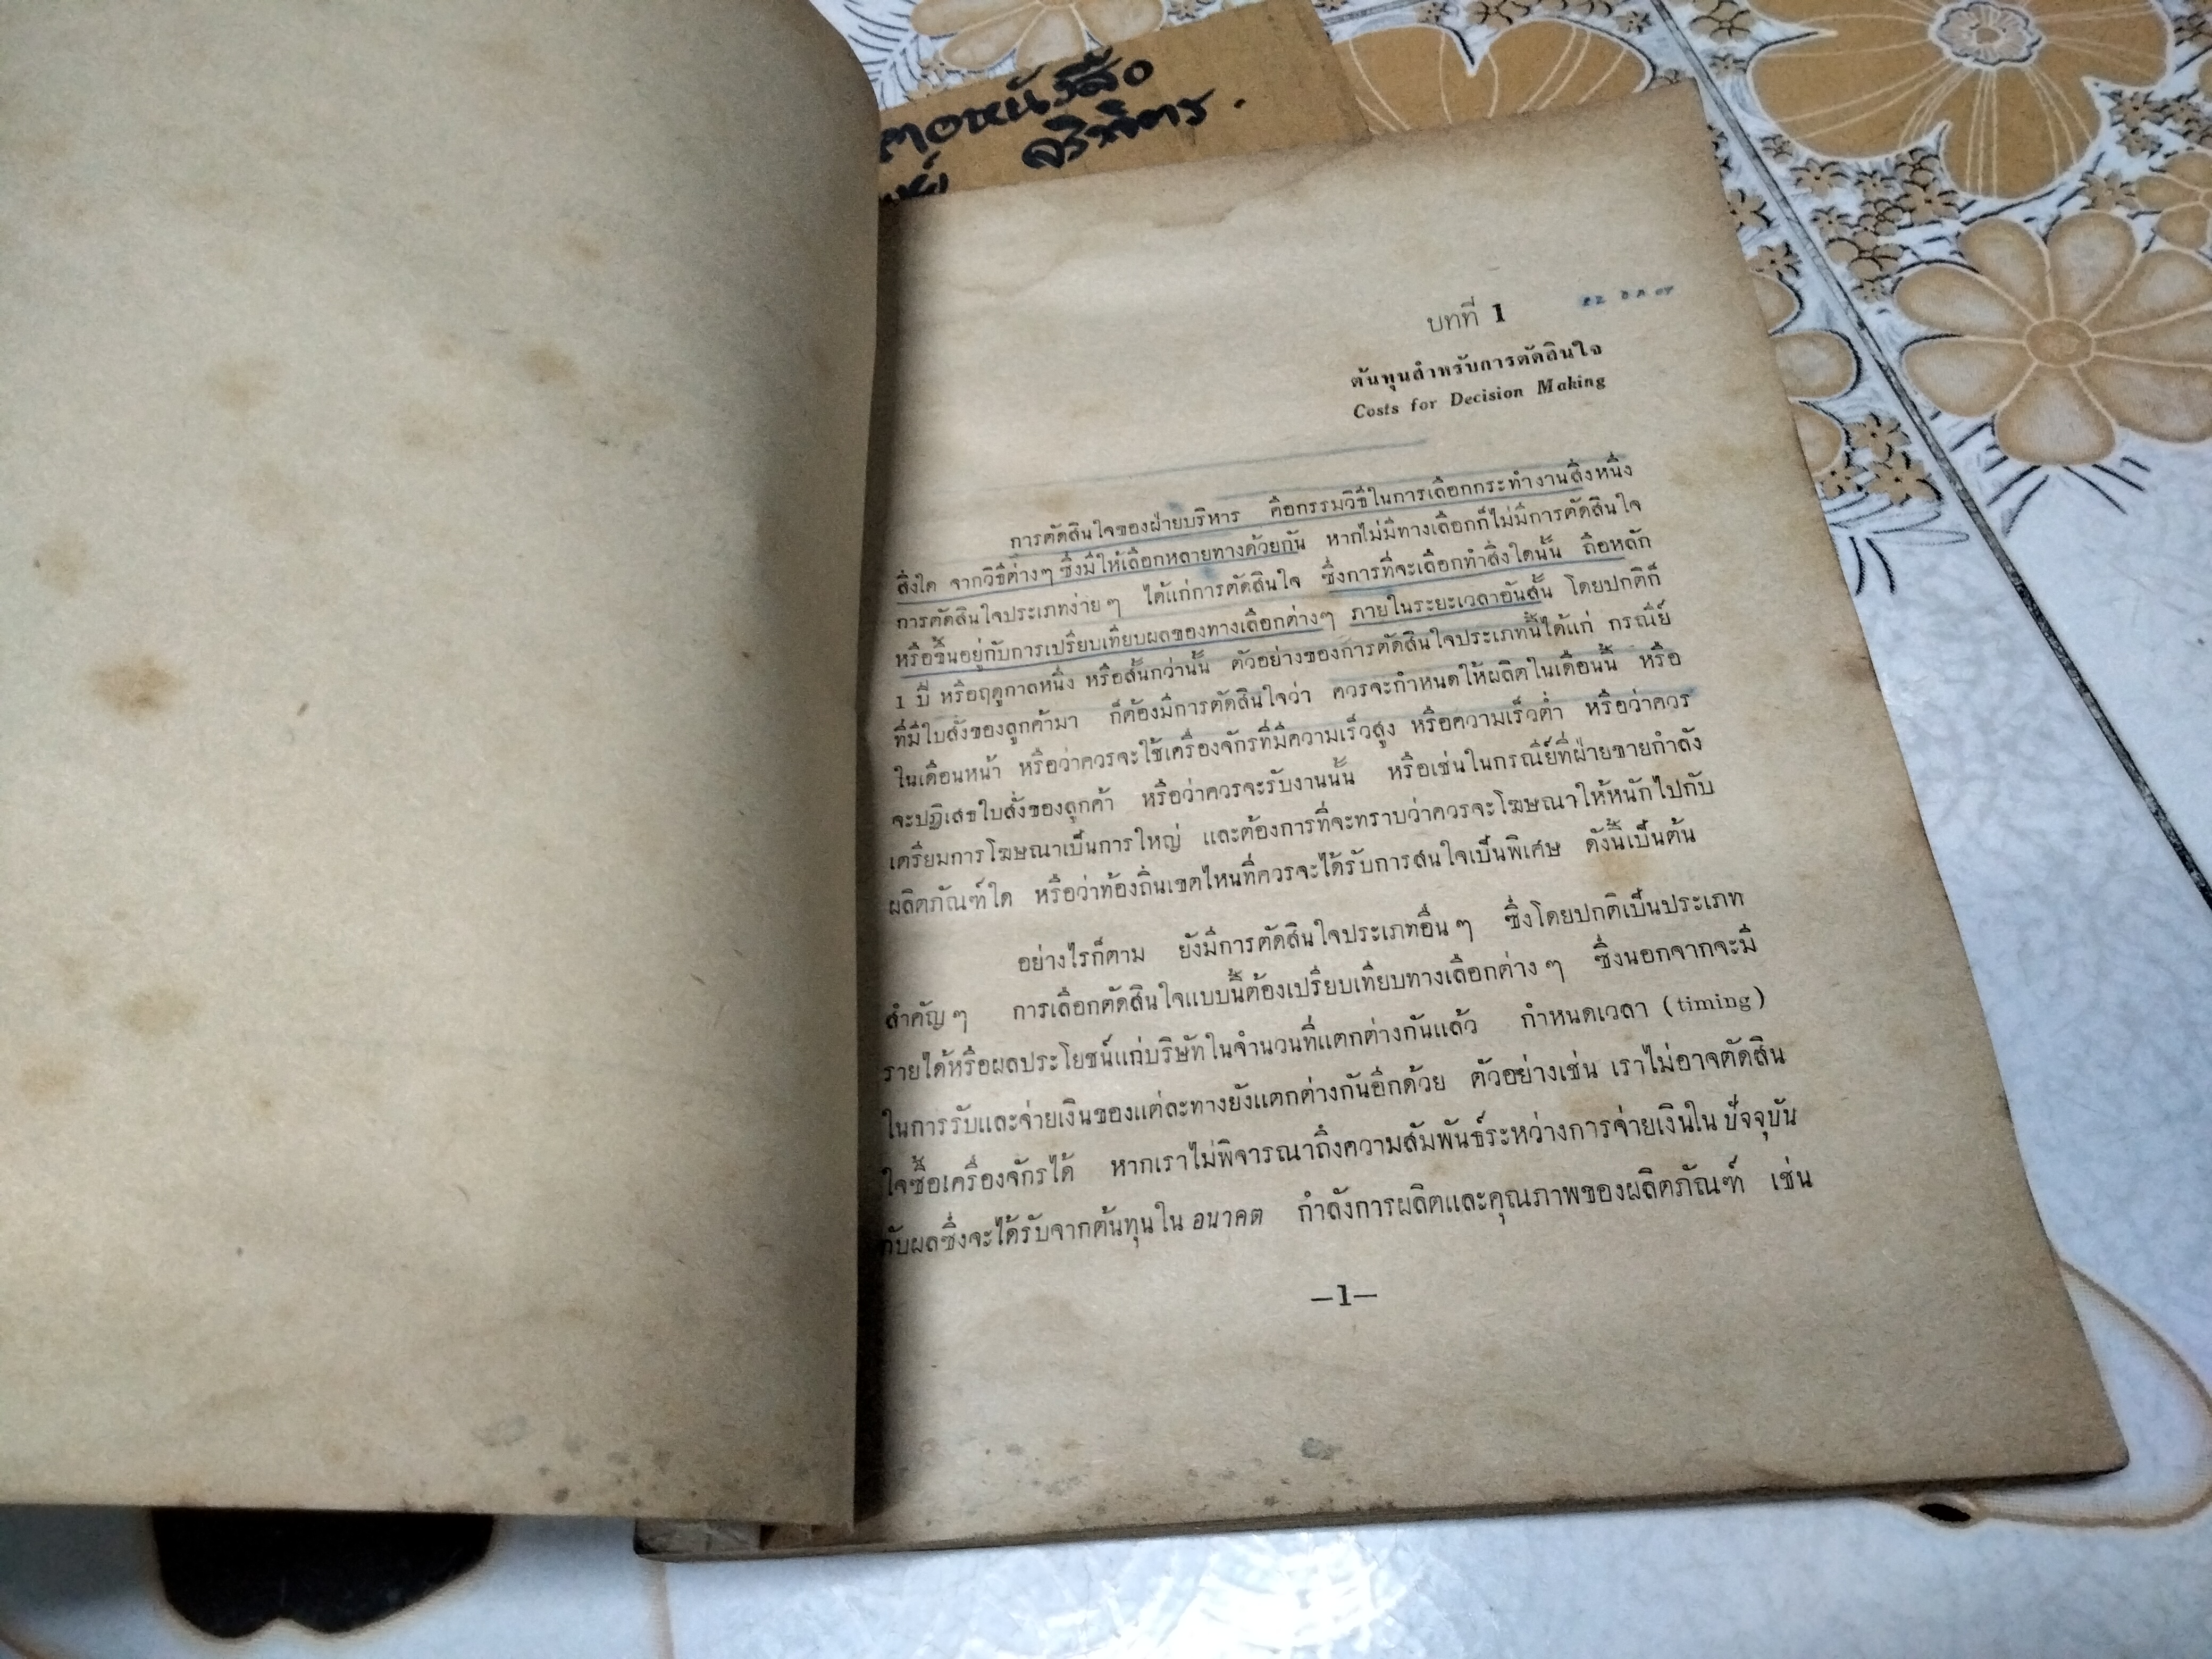 ตอหนังสือ
จริพัตร.
บทที่ 1
ต้นทุนสำหรับการตัดสินใจ
Costs for Decision Making
การตัดสินใจของฝ่ายบริหาร คือกรรมวิธีในการเลือกกระทำงานสิ่งหนึ่ง
สิ่งใด จากวิธีต่างๆ ซึ่งมีให้เลือกหลายทางด้วยกัน หากไม่มีทางเลือกก็ไม่มีการตัดสินใจ
การตัดสินใจประเภทง่ายๆ ได้แก่การตัดสินใจ ซึ่งการที่จะเลือกทำสิ่งใดนั้น ถือหลัก
หรือขึ้นอยู่กับการเปรียบเทียบผลของทางเลือกต่างๆ ภายในระยะเวลาอันสั้น โดยปกติก็
1 ปี หรือฤดูกาลหนึ่ง หรือสั้นกว่านั้น ตัวอย่างของการตัดสินใจประเภทนี้ได้แก่ กรณีย์
ที่มีใบสั่งของลูกค้ามา ก็ต้องมีการตัดสินใจว่า ควรจะกำหนดให้ผลิตในเดือนนี้ หรือ
ในเดือนหน้า หรือว่าควรจะใช้เครื่องจักรที่มีความเร็วสูง หรือความเร็วต่ำ หรือว่าควร
จะปฏิเสธใบสั่งของลูกค้า หรือว่าควรจะรับงานนั้น หรือเช่นในกรณีย์ที่ฝ่ายขายกำลัง
เตรียมการโฆษณาเป็นการใหญ่ และต้องการที่จะทราบว่าควรจะโฆษณาให้หนักไปกับ
ผลิตภัณฑ์ใด หรือว่าท้องถิ่นเขตไหนที่ควรจะได้รับการสนใจเป็นพิเศษ ดังนี้เป็นต้น
อย่างไรก็ตาม ยังมีการตัดสินใจประเภทอื่นๆ ซึ่งโดยปกติเป็นประเภท
สำคัญๆ การเลือกตัดสินใจแบบนี้ต้องเปรียบเทียบทางเลือกต่างๆ ซึ่งนอกจากจะมี
รายได้หรือผลประโยชน์แก่บริษัทในจำนวนที่แตกต่างกันแล้ว กำหนดเวลา (timing)
ในการรับและจ่ายเงินของแต่ละทางยังแตกต่างกันอีกด้วย ตัวอย่างเช่น เราไม่อาจตัดสิน
ใจซื้อเครื่องจักรได้ หากเราไม่พิจารณาถึงความสัมพันธ์ระหว่างการจ่ายเงินใน ปัจจุบัน
กับผลซึ่งจะได้รับจากต้นทุนใน อนาคต กำลังการผลิตและคุณภาพของผลิตภัณฑ์ เช่น
—1—